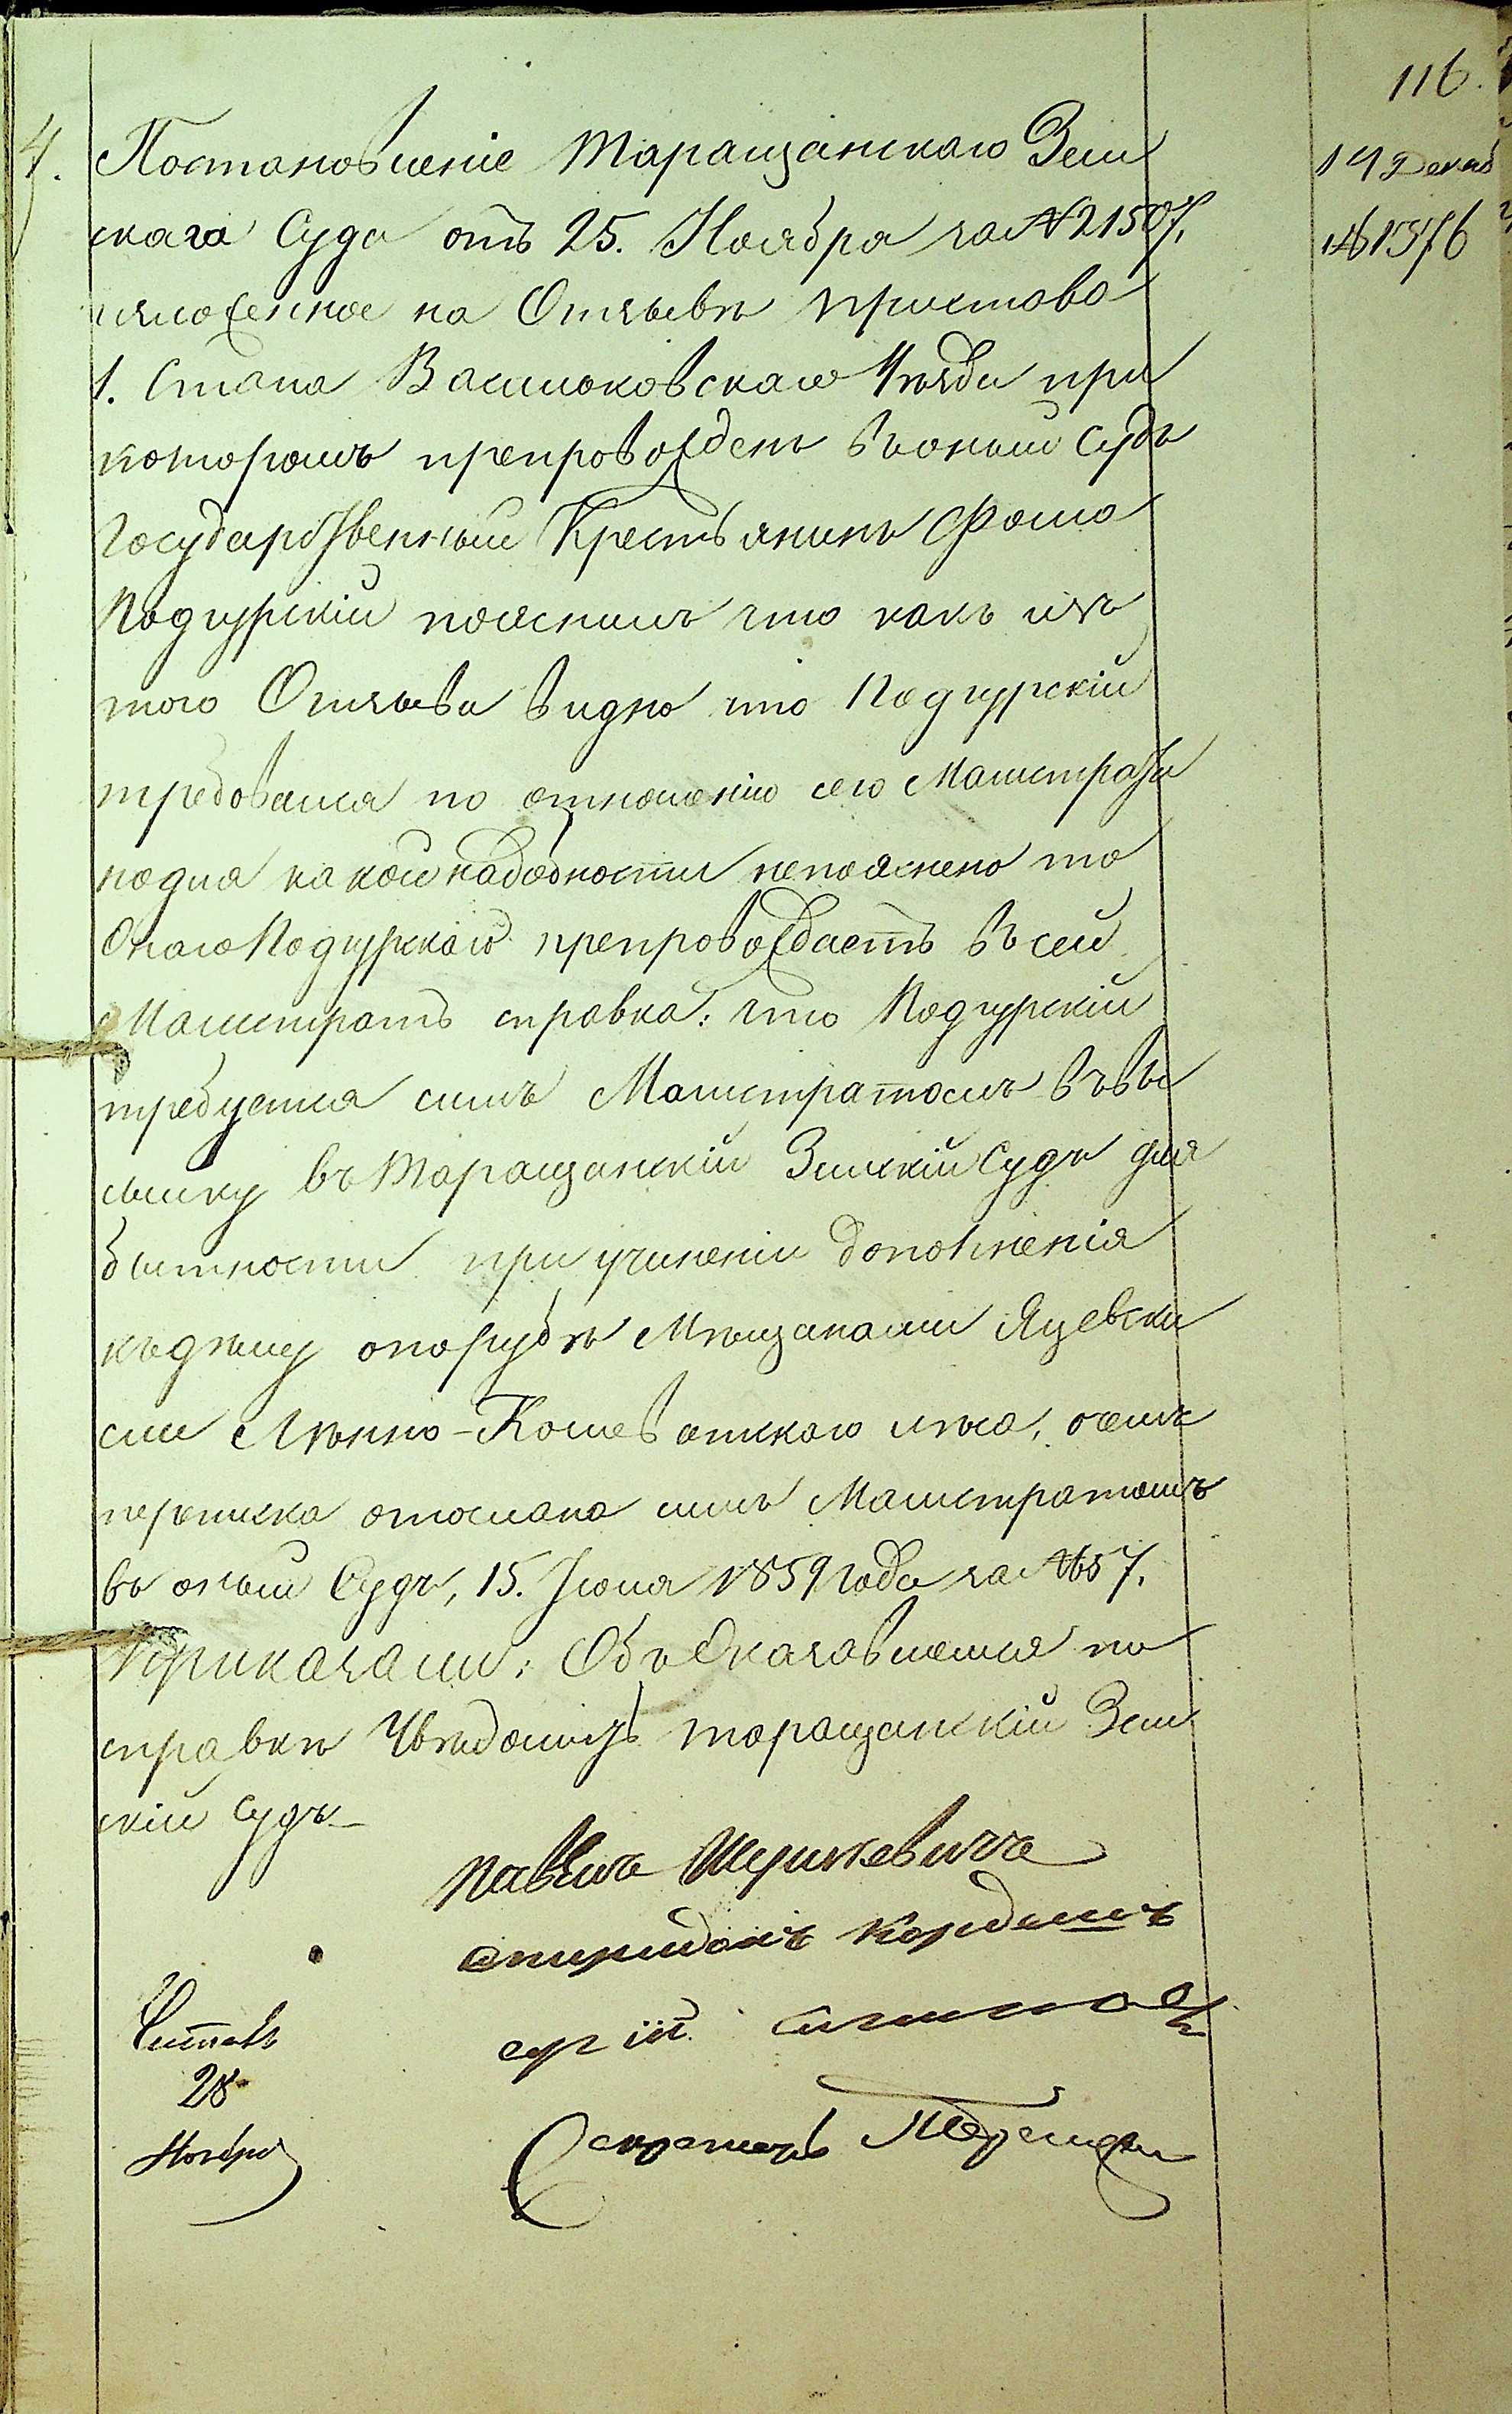 116.
4.
Постановленіе Таращанскаго Зем
скаго Суда отъ 25. Ноября за № 21507,
изложенное на Отзывѣ пристава
1. Стана Васильковскаго Уѣзда при
которомъ препровожденъ въ оный Судъ
Государственный Крестьянинъ Фома
Подгурскій пояснилъ что какъ изъ
того Отзыва видно что Подгурскій
требовался по отношенію сего Магистрата
но для какой надобности непояснено то
Онаго Подгурскаго препровождаетъ въ сей
Магистратъ справка: что Подгурскій
требуется симъ Магистратомъ въ вы
сылку въ Таращанскій Земскій Судъ для
бытности при учиненіи дополненія
къ дѣлу о порубкѣ Мѣщанами Яцевски
ми Лѣнно-Кошеватскаго лѣса, о чемъ
переписка отослана симъ Магистратомъ
въ оный Судъ, 15. Іюня 1859 года за № 657.
Приказали: Объ Оказавшемся по
справкѣ Увѣдомить Таращанскій Зем
скій Судъ
14 Декаб
№ 1576
Павелъ
Спиридонъ
Секретарь
Читалъ
28
Ноября